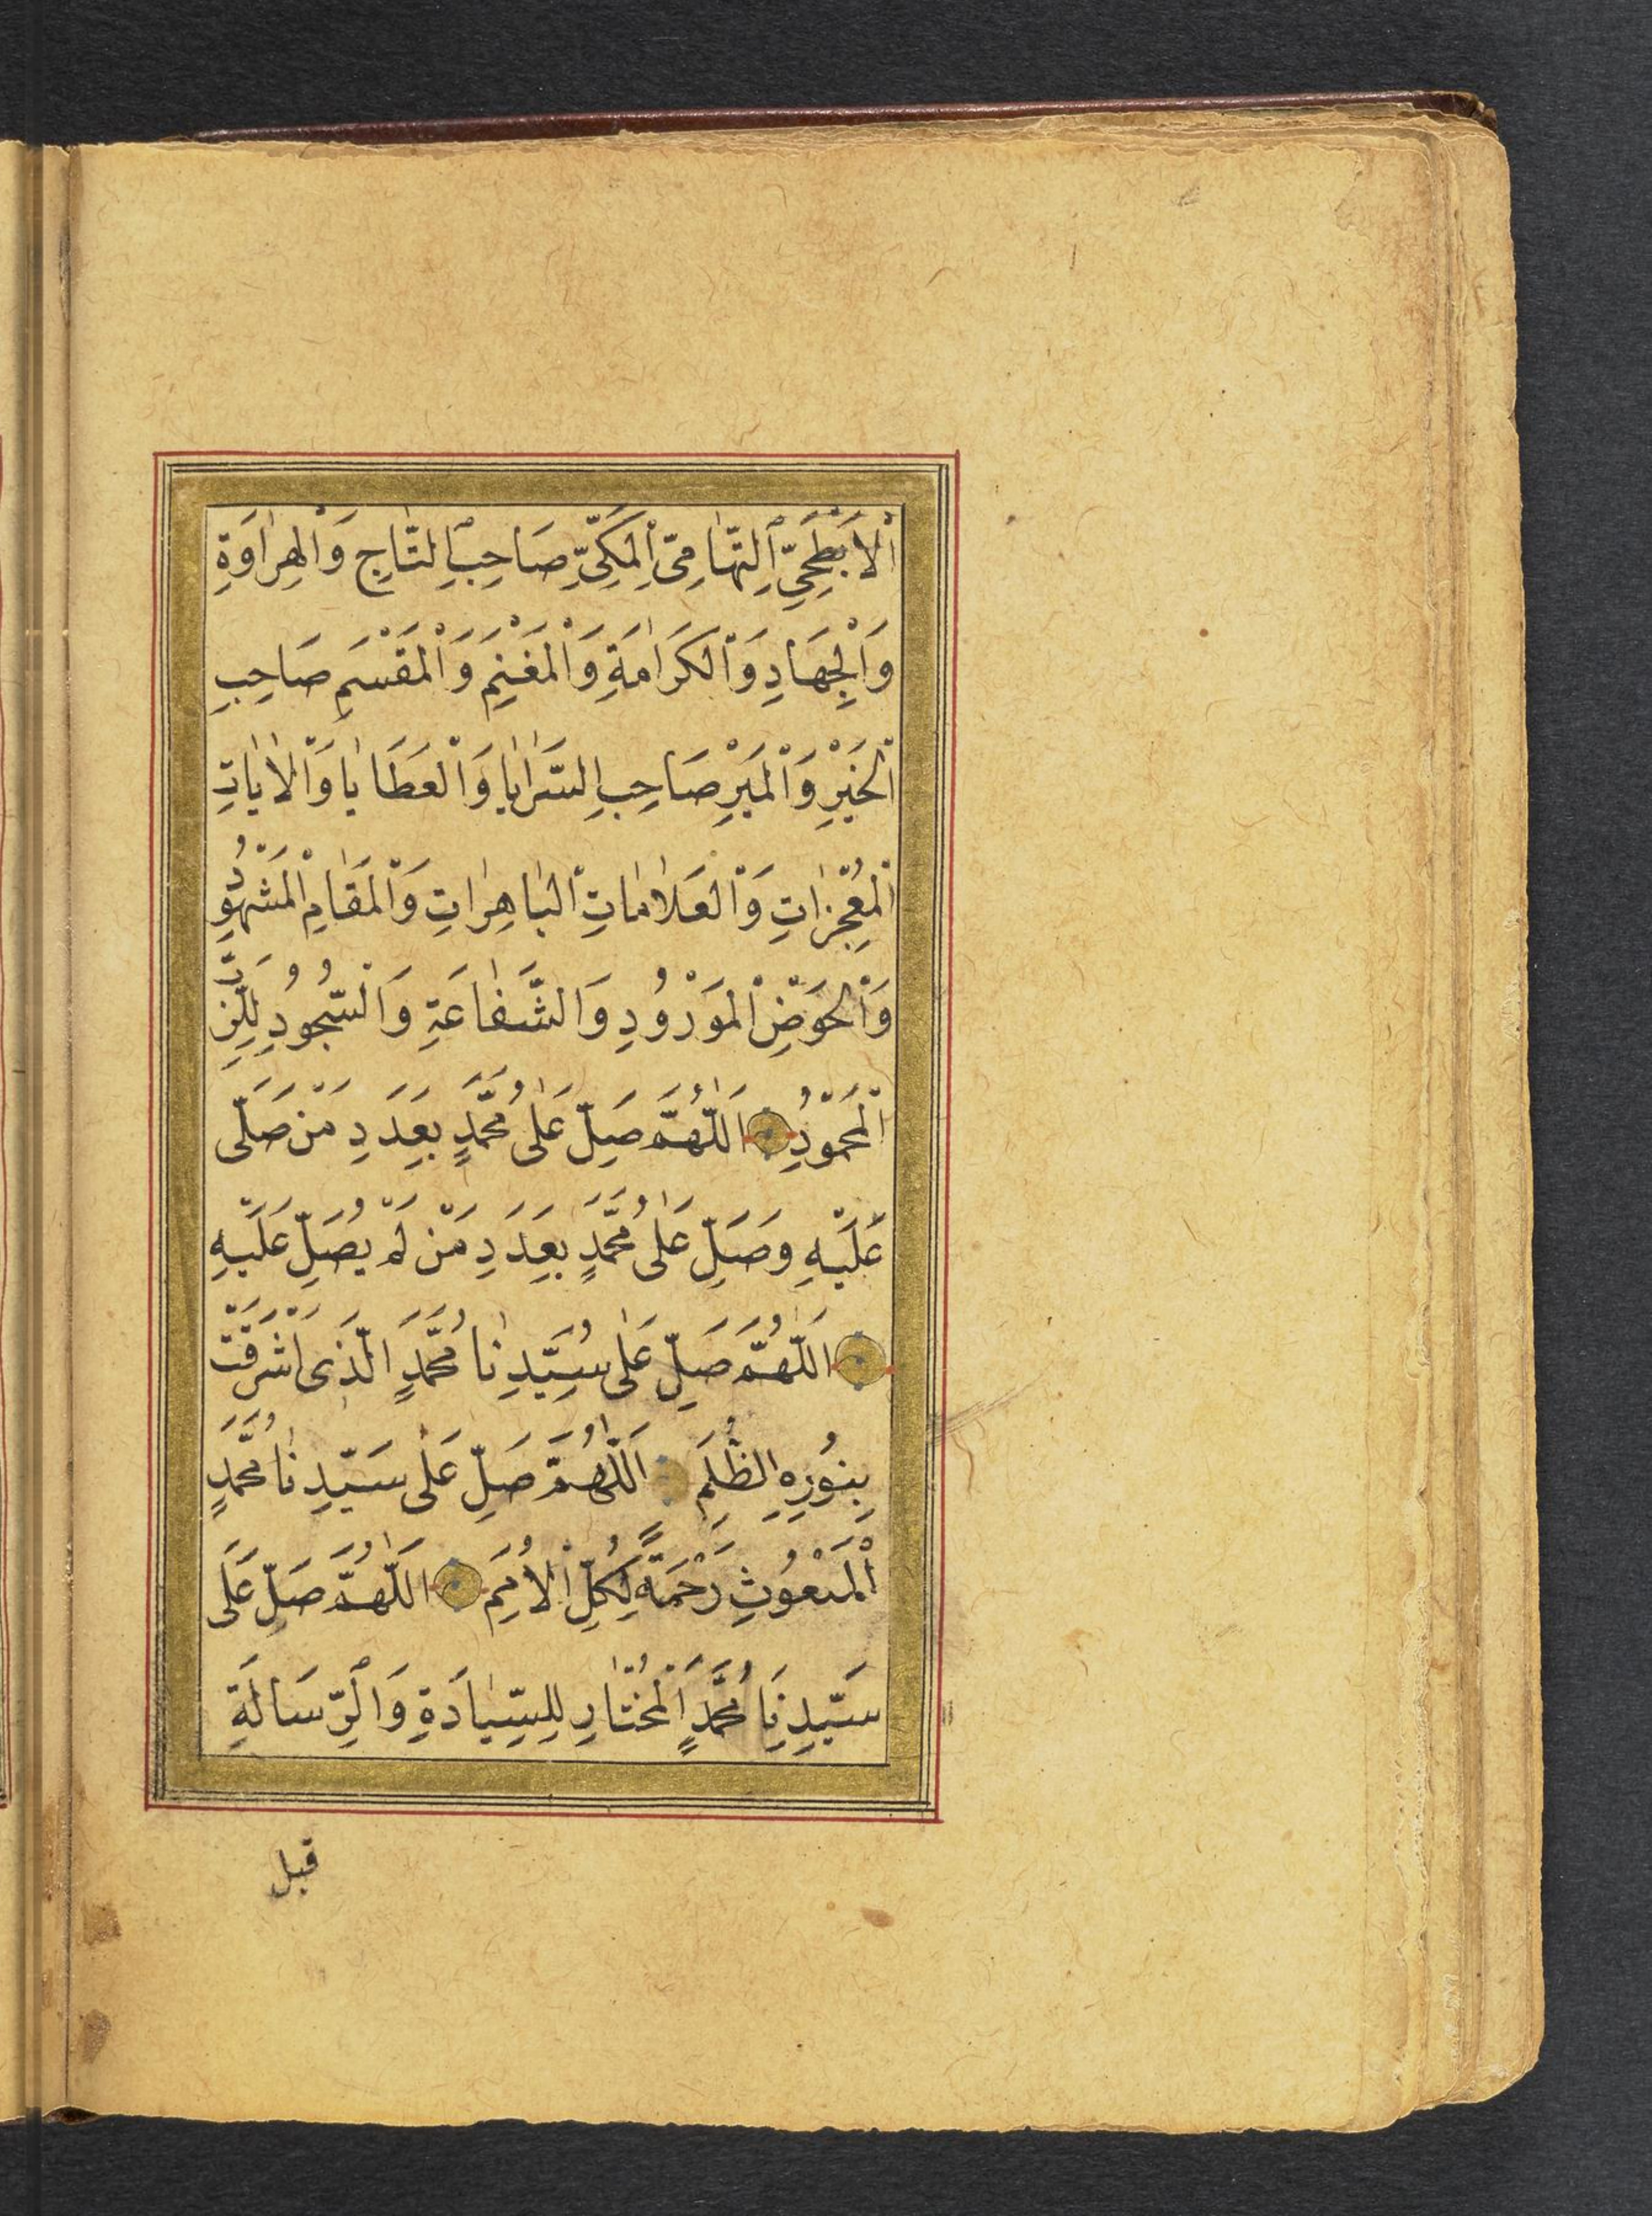 اَلْاَبْطَحِيِّ اَلتِّهَامِيِّ اَلْمَكِّيِّ صَاحِبِ اَلتَّاجِ وَالْهِرَاوَةِ
وَالْجِهَادِ وَالْكَرَامَةِ وَالْمَغْنَمِ وَالْمَقْسَمِ صَاحِبِ
الْخَيْرِ وَالْمَيْرِ صَاحِبِ السَّرَايَا وَالْعَطَايَا وَالْاٰيَاتِ
الْمُعْجِزَاتِ وَالْعَلَامَاتِ الْبَاهِرَاتِ وَالْمَقَامِ الْمَشْهُودِ
وَالْحَوْضِ الْمَوْرُودِ وَالشَّفَاعَةِ وَالسُّجُودِ لِلرَّبِّ
الْمَحْمُودِ اَللّٰهُمَّ صَلِّ عَلٰى مُحَمَّدٍ بِعَدَدِ مَنْ صَلّٰى
عَلَيْهِ وَصَلِّ عَلٰى مُحَمَّدٍ بِعَدَدِ مَنْ لَمْ يُصَلِّ عَلَيْهِ
اَللّٰهُمَّ صَلِّ عَلٰى سَيِّدِنَا مُحَمَّدٍ الَّذِى اَشْرَقَتْ
بِنُورِهِ الظُّلَمِ اَللّٰهُمَّ صَلِّ عَلٰى سَيِّدِنَا مُحَمَّدٍ
الْمَبْعُوثِ رَحْمَةً لِكُلِّ الْاُمَمِ اَللّٰهُمَّ صَلِّ عَلٰى
سَيِّدِنَا مُحَمَّدٍ الْمُخْتَارِ لِلسِّيَادَةِ وَالرِّسَالَةِ
قبل